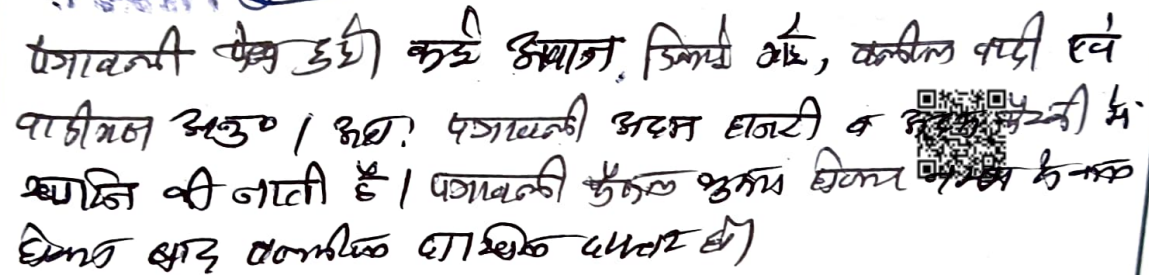 पत्रावली पेश हुई। कई आवाज दिलाये गये, वकील वादी एवं
वादीगण अनु० । अतः पत्रावली अदम हाजरी व अदम पैरवी में
खारिज की जाती है । पत्रावली फैसल शुमार होकर नम्बर से कम
होकर बाद तकमील दाखिल दफ्तर हो।